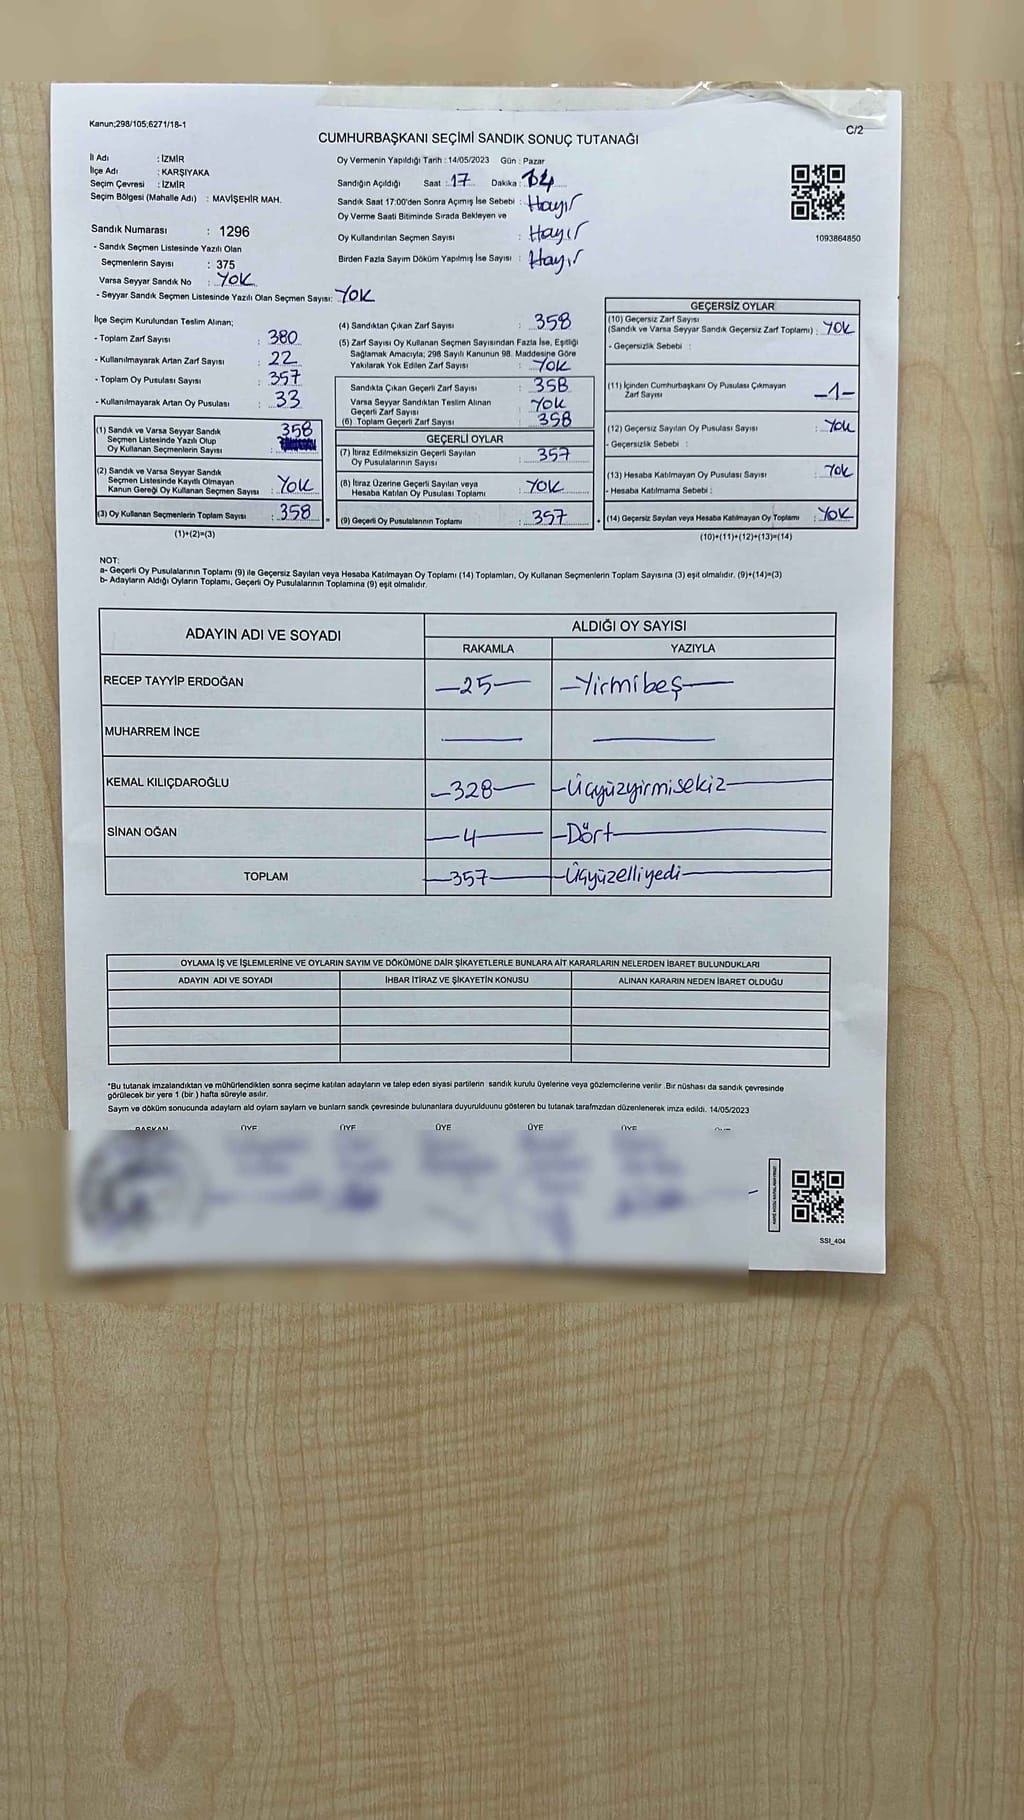 Kanun;298/105;6271/18-1
C/2
CUMHURBAŞKANI SEÇİMİ SANDIK SONUÇ TUTANAĞI
İl Adı : İZMİR
İlçe Adı : KARŞIYAKA
Seçim Çevresi : İZMİR
Seçim Bölgesi (Mahalle Adı) : MAVİŞEHİR MAH.
Sandık Numarası : 1296
- Sandık Seçmen Listesinde Yazılı Olan
Seçmenlerin Sayısı : 375
Varsa Seyyar Sandık No : YOK
- Seyyar Sandık Seçmen Listesinde Yazılı Olan Seçmen Sayısı: YOK
Oy Vermenin Yapıldığı Tarih : 14/05/2023 Gün : Pazar
Sandığın Açıldığı Saat : 17 Dakika :
Sandık Saat 17:00'den Sonra Açımış İse Sebebi : Hayır
Oy Verme Saati Bitiminde Sırada Bekleyen ve
Oy Kullandırılan Seçmen Sayısı : Hayır
Birden Fazla Sayım Döküm Yapılmış İse Sayısı : Hayır
1093864850
İlçe Seçim Kurulundan Teslim Alınan;
- Toplam Zarf Sayısı : 380
- Kullanılmayarak Artan Zarf Sayısı : 22
- Toplam Oy Pusulası Sayısı : 357
- Kullanılmayarak Artan Oy Pusulası : 33
(1) Sandık ve Varsa Seyyar Sandık 358
Seçmen Listesinde Yazılı Olup
Oy Kullanan Seçmenlerin Sayısı :
(2) Sandık ve Varsa Seyyar Sandık
Seçmen Listesinde Kayıtlı Olmayan
Kanun Gereği Oy Kullanan Seçmen Sayısı : YOK
(3) Oy Kullanan Seçmenlerin Toplam Sayısı : 358
(1)+(2)=(3)
(4) Sandıktan Çıkan Zarf Sayısı : 358
(5) Zarf Sayısı Oy Kullanan Seçmen Sayısından Fazla İse, Eşitliği
Sağlamak Amacıyla; 298 Sayılı Kanunun 98. Maddesine Göre
Yakılarak Yok Edilen Zarf Sayısı : YOK
Sandıkta Çıkan Geçerli Zarf Sayısı : 358
Varsa Seyyar Sandıktan Teslim Alınan : YOK
Geçerli Zarf Sayısı
(6) Toplam Geçerli Zarf Sayısı : 358
GEÇERLİ OYLAR
(7) İtiraz Edilmeksizin Geçerli Sayılan : 357
Oy Pusulalarının Sayısı
(8) İtiraz Üzerine Geçerli Sayılan veya : YOK
Hesaba Katılan Oy Pusulası Toplamı
(9) Geçerli Oy Pusulalarının Toplamı : 357
GEÇERSİZ OYLAR
(10) Geçersiz Zarf Sayısı
(Sandık ve Varsa Seyyar Sandık Geçersiz Zarf Toplamı) : YOK
- Geçersizlik Sebebi :
(11) İçinden Cumhurbaşkanı Oy Pusulası Çıkmayan
Zarf Sayısı : -1-
(12) Geçersiz Sayılan Oy Pusulası Sayısı : YOK
- Geçersizlik Sebebi :
(13) Hesaba Katılmayan Oy Pusulası Sayısı : YOK
- Hesaba Katılmama Sebebi :
(14) Geçersiz Sayılan veya Hesaba Katılmayan Oy Toplamı : YOK
(10)+(11)+(12)+(13)=(14)
NOT:
a- Geçerli Oy Pusulalarının Toplamı (9) ile Geçersiz Sayılan veya Hesaba Katılmayan Oy Toplamı (14) Toplamları, Oy Kullanan Seçmenlerin Toplam Sayısına (3) eşit olmalıdır. (9)+(14)=(3)
b- Adayların Aldığı Oyların Toplamı, Geçerli Oy Pusulalarının Toplamına (9) eşit olmalıdır.
ADAYIN ADI VE SOYADI ALDIĞI OY SAYISI
RAKAMLA YAZIYLA
RECEP TAYYİP ERDOĞAN -25- -Yirmibeş-
MUHARREM İNCE
KEMAL KILIÇDAROĞLU -328- -Üçyüzyirmisekiz-
SİNAN OĞAN -4- -Dört-
TOPLAM -357- -Üçyüzelliyedi-
OYLAMA İŞ VE İŞLEMLERİNE VE OYLARIN SAYIM VE DÖKÜMÜNE DAİR ŞİKAYETLERLE BUNLARA AİT KARARLARIN NELERDEN İBARET BULUNDUKLARI
ADAYIN ADI VE SOYADI İHBAR İTİRAZ VE ŞİKAYETİN KONUSU ALINAN KARARIN NEDEN İBARET OLDUĞU
*Bu tutanak imzalandıktan ve mühürlendikten sonra seçime katılan adayların ve talep eden siyasi partilerin sandık kurulu üyelerine veya gözlemcilerine verilir .Bir nüshası da sandık çevresinde
görülecek bir yere 1 (bir ) hafta süreyle asılır.
Sayım ve döküm sonucunda adaylarn ald oylarn sayların ve bunların sandk çevresinde bulunanlara duyurulduunu gösteren bu tutanak tarafmzdan düzenlenerek imza edildi. 14/05/2023
BAŞKAN ÜYE ÜYE ÜYE ÜYE ÜYE
SSI_404